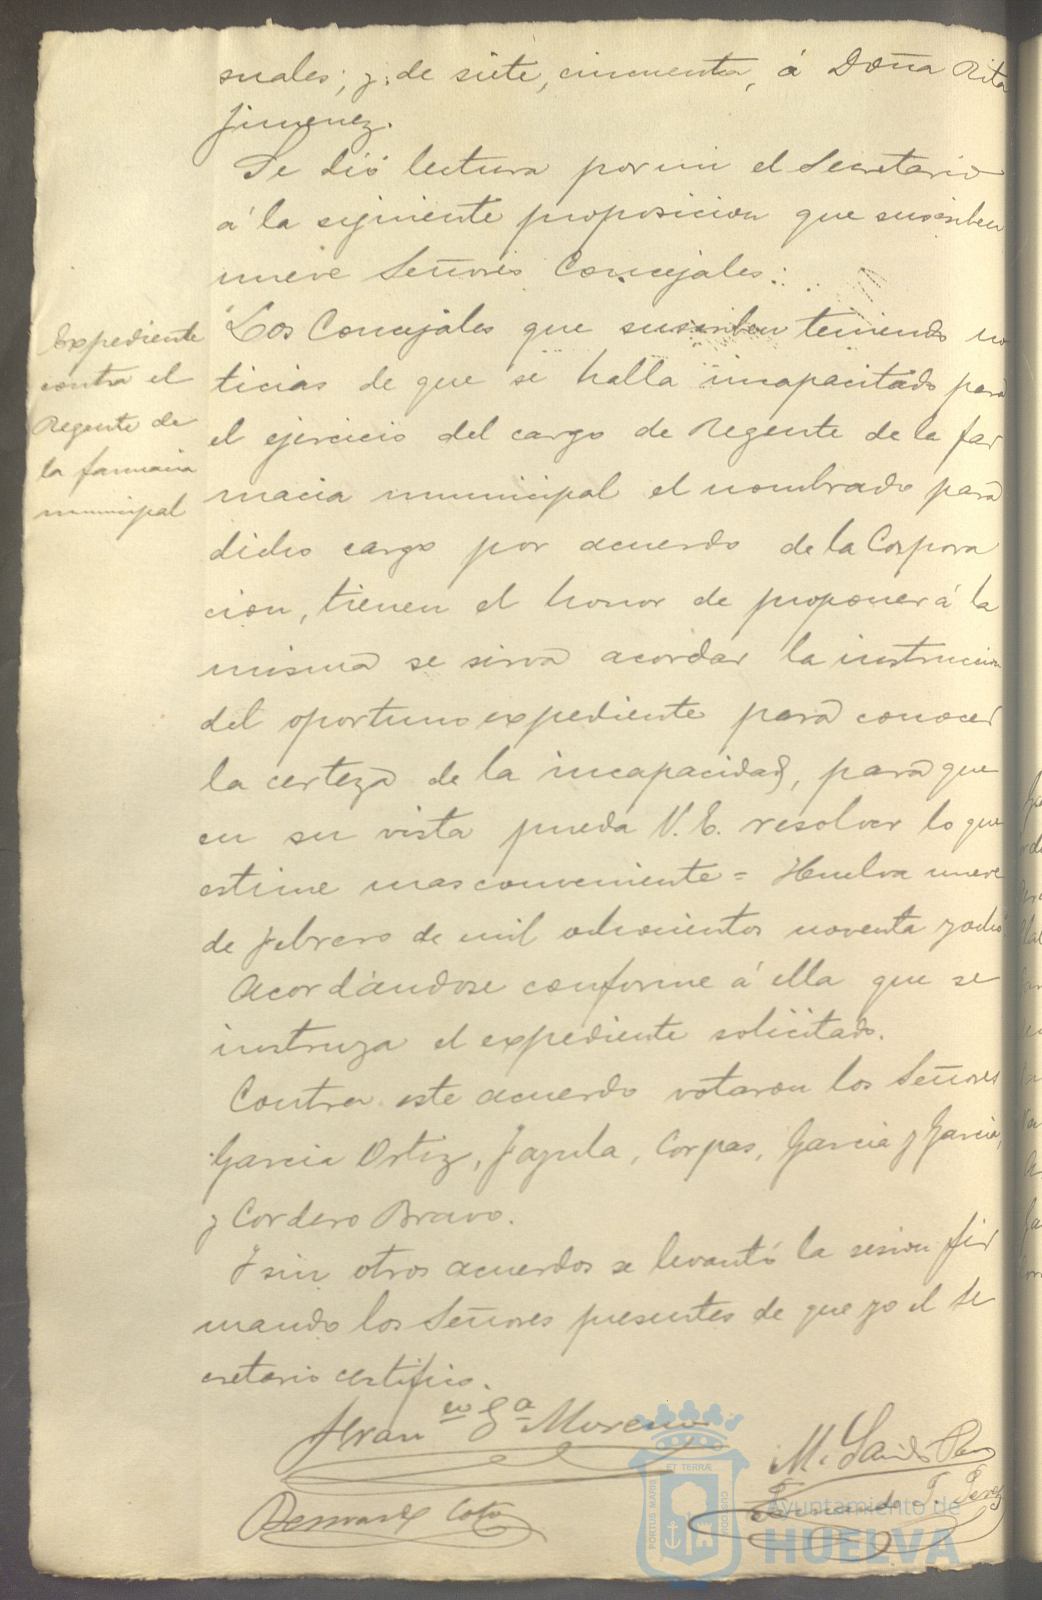 suales; y, de siete, cincuenta, á Doña Rita
Jimenez.
Se dió lectura por mi el Secretario
á la siguiente proposicion que suscriben
nueve Señores Concejales:
Expediente
contra el
Regente de
la farmacia
municipal
"Los Concejales que suscriben teniendo no
ticias de que se halla incapacitado para
el ejercicio del cargo de Regente de la far
macia municipal el nombrado para
dicho cargo por acuerdo de la Corpora
cion, tienen el honor de proponer á la
misma se sirva acordar la instruccion
del oportuno expediente para conocer
la certeza de la incapacidad, para que
en su vista pueda V. E. resolver lo que
estime mas conveniente = Huelva nueve
de febrero de mil ochocientos noventa y ocho"
Acordándose conforme á ella que se
instruya el expediente solicitado.
Contra este acuerdo votaron los Señores
Garcia Ortiz, Japula, Corpas, Garcia y Garcia,
y Cordero Bravo.
Y sin otros acuerdos se levantó la sesion fir
mando los Señores presentes de que yo el Se
cretario certifico.
Fran.co G.a Moreno
Bernard Coto
PORTUS MARIS ET TERRÆ CUSTODIA
Ayuntamiento de
HUELVA